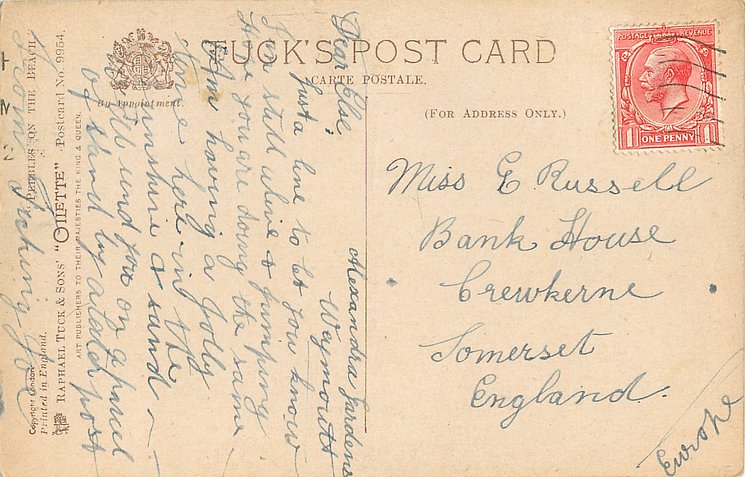 TUCK'S POST CARD
CARTE POSTALE.
(FOR ADDRESS ONLY.)
By Appointment.
POSTAGE REVENUE
1 ONE PENNY 1
Miss E. Russell
Bank House
Crewkerne
Somerset
England.
Europe
Alexandra Gardens
Weymouth
Dear Elsi,
Just a line to let you know
I'm still alive & jumping.
Hope you are doing the same.
Am having a jolly
time here in the
sunshine & sand —
will send you on a parcel
of sand by a later post
From
PEBBLES ON THE BEACH
RAPHAEL TUCK & SONS' "OILETTE" Postcard No. 9954.
ART PUBLISHERS TO THEIR MAJESTIES THE KING & QUEEN.
Copyright London
Printed in England.